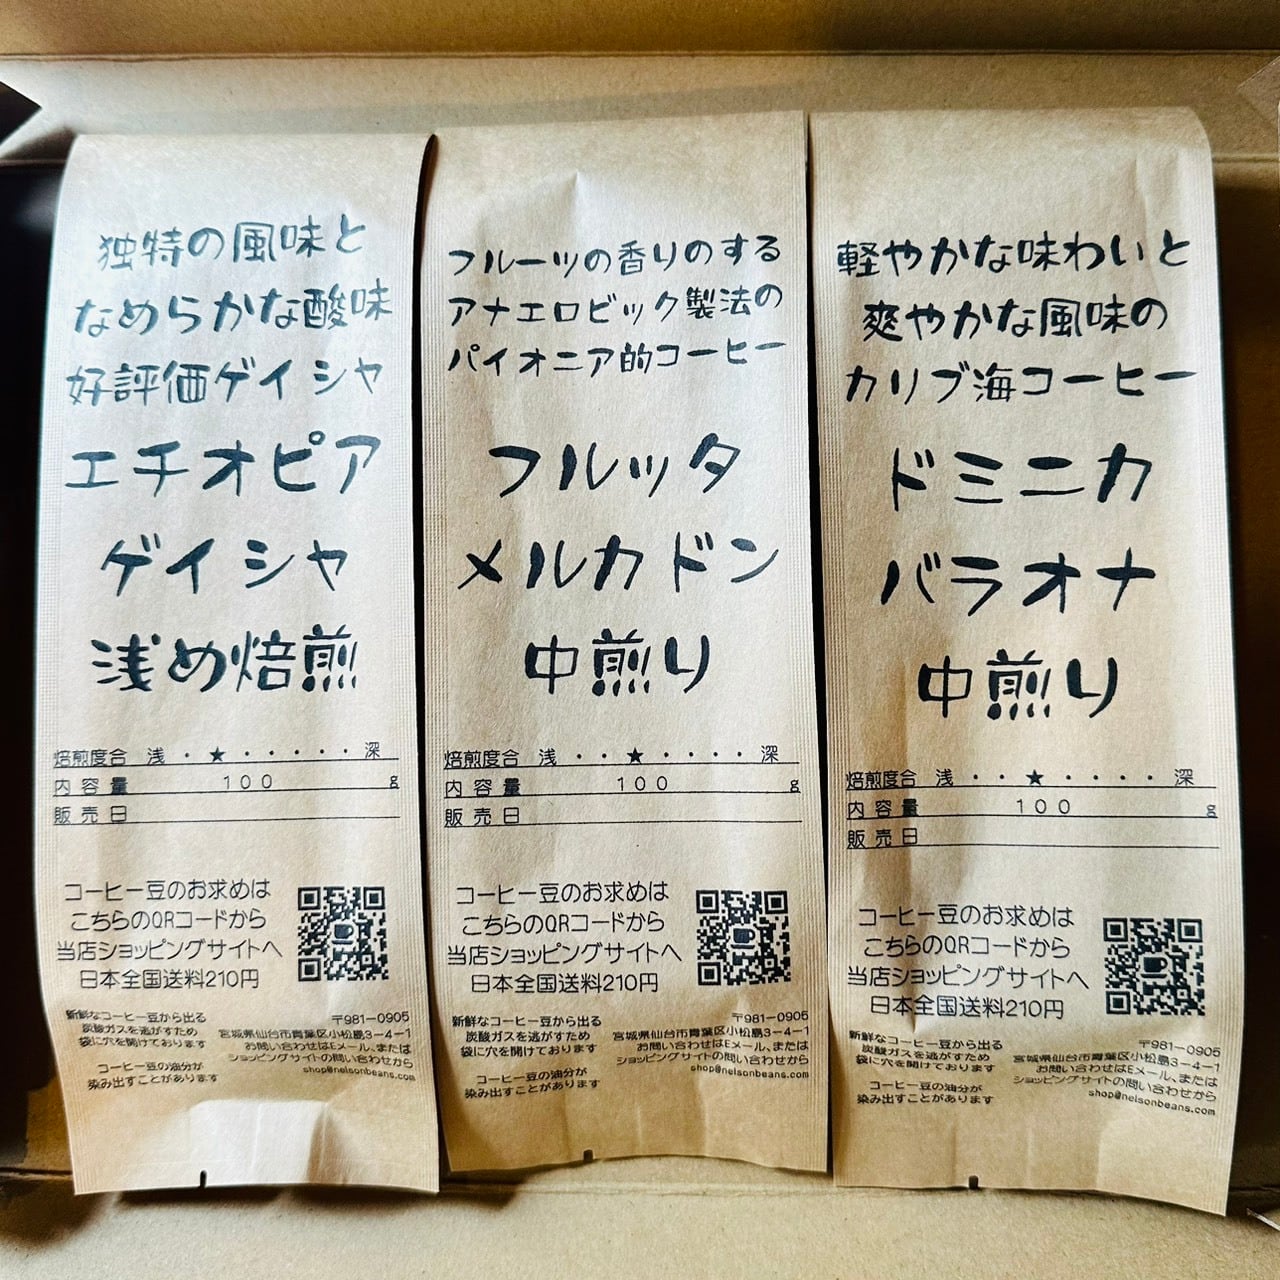 独特の風味と
なめらかな酸味
好評価ゲイシャ
エチオピア
ゲイシャ
浅め焙煎
焙煎度合 浅・★・・・・・深
内容量 100 g
販売日
コーヒー豆のお求めは
こちらのQRコードから
当店ショッピングサイトへ
日本全国送料210円
新鮮なコーヒー豆から出る
炭酸ガスを逃がすため
袋に穴を開けております
コーヒー豆の油分が
染み出すことがあります
〒981-0905
宮城県仙台市青葉区小松島3-4-1
お問い合わせはEメール、または
ショッピングサイトの問い合わせから
shop@nelsonbeans.com
フルーツの香りのする
アナエロビック製法の
パイオニア的コーヒー
フルッタ
メルカドン
中煎り
焙煎度合 浅・・★・・・・深
内容量 100 g
販売日
コーヒー豆のお求めは
こちらのQRコードから
当店ショッピングサイトへ
日本全国送料210円
新鮮なコーヒー豆から出る
炭酸ガスを逃がすため
袋に穴を開けております
コーヒー豆の油分が
染み出すことがあります
〒981-0905
宮城県仙台市青葉区小松島3-4-1
お問い合わせはEメール、または
ショッピングサイトの問い合わせから
shop@nelsonbeans.com
軽やかな味わいと
爽やかな風味の
カリブ海コーヒー
ドミニカ
バラオナ
中煎り
焙煎度合 浅・・★・・・・深
内容量 100 g
販売日
コーヒー豆のお求めは
こちらのQRコードから
当店ショッピングサイトへ
日本全国送料210円
新鮮なコーヒー豆から出る
炭酸ガスを逃がすため
袋に穴を開けております
コーヒー豆の油分が
染み出すことがあります
〒981-0905
宮城県仙台市青葉区小松島3-4-1
お問い合わせはEメール、または
ショッピングサイトの問い合わせから
shop@nelsonbeans.com